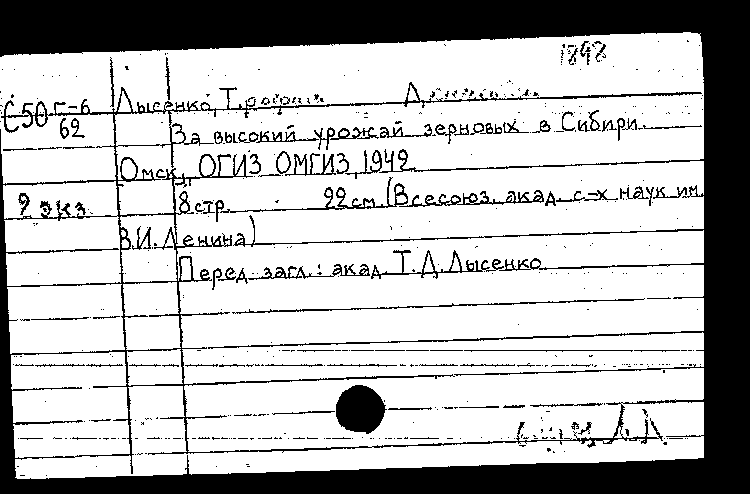 1898
С50 Г-6
62
Лысенко, Трофим Денисович
За высокий урожай зерновых в Сибири.
Омск, ОГИЗ ОМГИЗ, 1942
9 экз. 8 стр. 22 см. (Всесоюз. акад. с-х наук им.
В.И. Ленина)
Перед загл.: акад. Т.Д. Лысенко